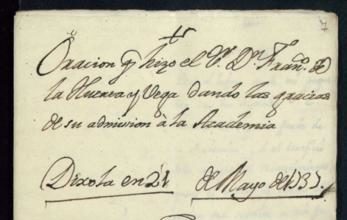 Oracion q hizo el Sr. Dn. Franco. de
la Huerta y Vega dando las gracias
de su admision a la Academia
Dixola en 21 de Mayo de 1737.